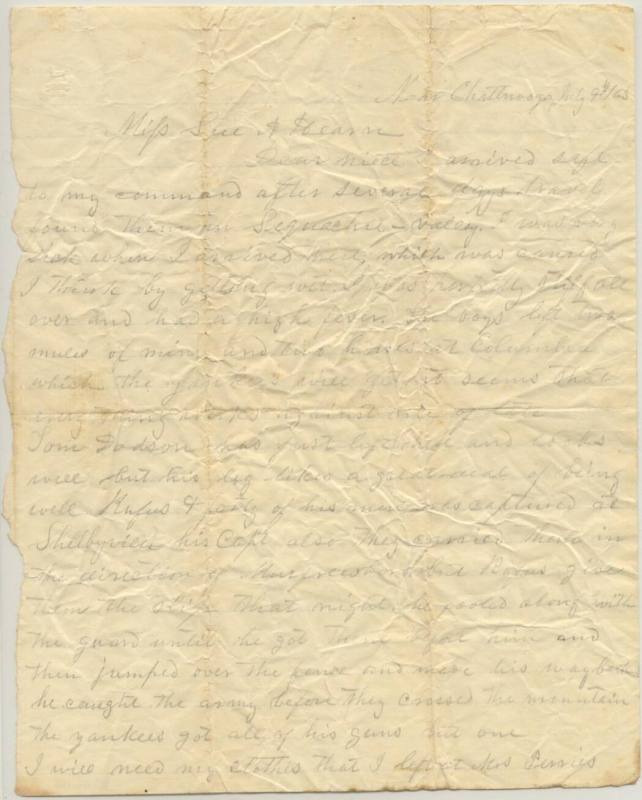 Near Chattnooga July 9th/63
Miss Sue A Hearn
Dear niece I arrived safe
to my command after several days travel
found them in Sequachie valley. I was
sick when I arrived here, which was caused
I think by getting wet I was perfectly stiff all
over and had a high fever. The boys left two
mules of mine and two horses at Columbia
which the Yankees will get it seems that
every thing works against me of late
Tom Dodson has just left and looks
well but his leg likes a great deal of being
well Rufus & of his men was captured at
Shelbyville his Capt also they carried them in
the direction of Murfreesboro and Rufus give
them the slip that night he fooled along with
the guard until he got them him and
then jumped over the fence and made his way back
he caught the army before they crossed the mountain
the yankees got all of his guns but one
I will need my clothes that I left at Mrs Perries